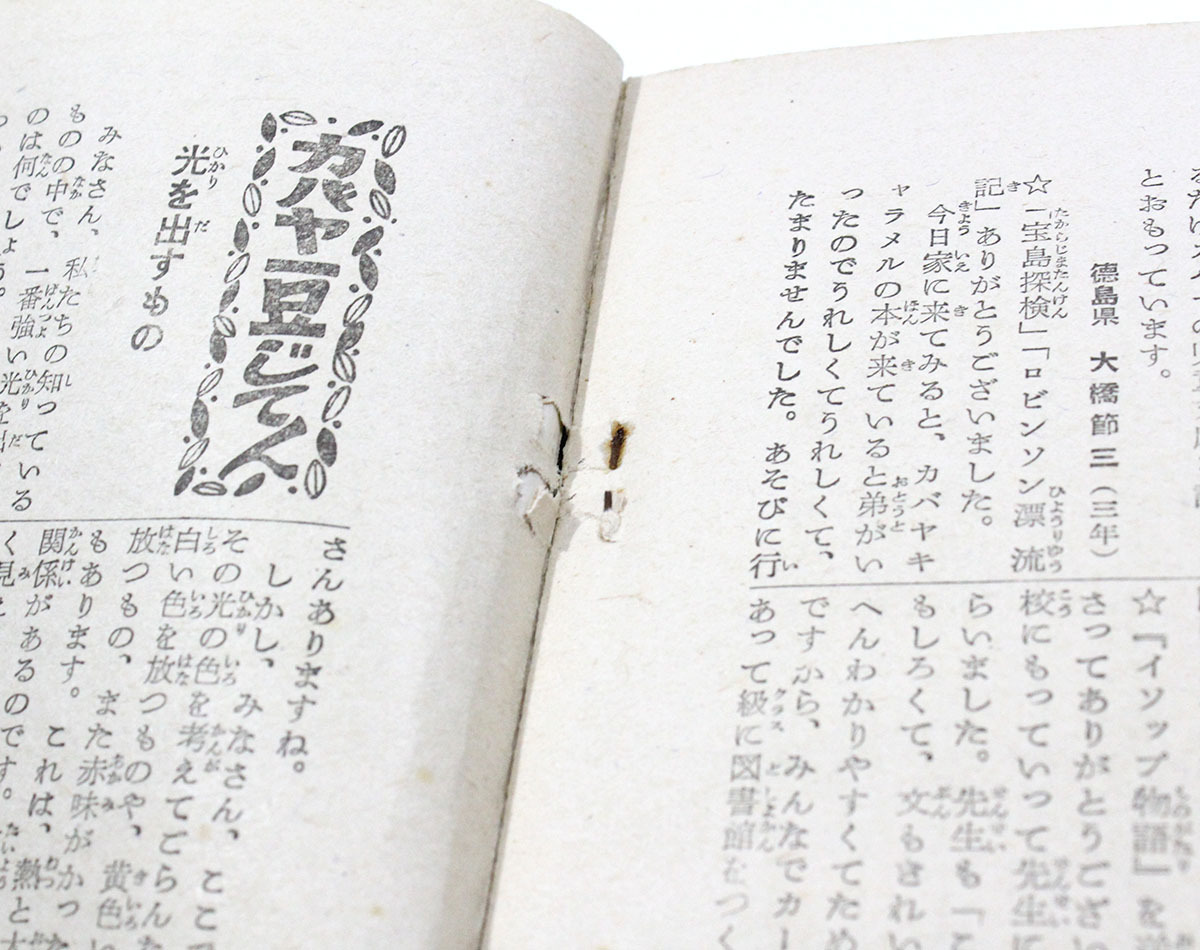 とおもっています。
徳島県 大橋節三（三年）
☆「宝島探検」「ロビンソン漂流
記」ありがとうございました。
今日家に来てみると、カバヤキ
ャラメルの本が来ていると弟がい
ったのでうれしくてうれしくて、
たまりませんでした。あそびに行
☆『イソップ物語』を
さってありがとうござ
校にもっていって先生に
らいました。先生も「こ
もしろくて、文もきれい
へんわかりやすくてため
ですから、みんなでカ
あって級に図書館をつく
カバヤ豆じてん
光を出すもの
みなさん、私たちの知っている
ものの中で、一番強い光を出
のは何でしょう。
さんありますね。
しかし、みなさん、ここで
その光の色を考えてごらん
白い色を放つものや、黄色い
放つもの、また赤味がかった
もあります。これは、熱と
関係があるのです。